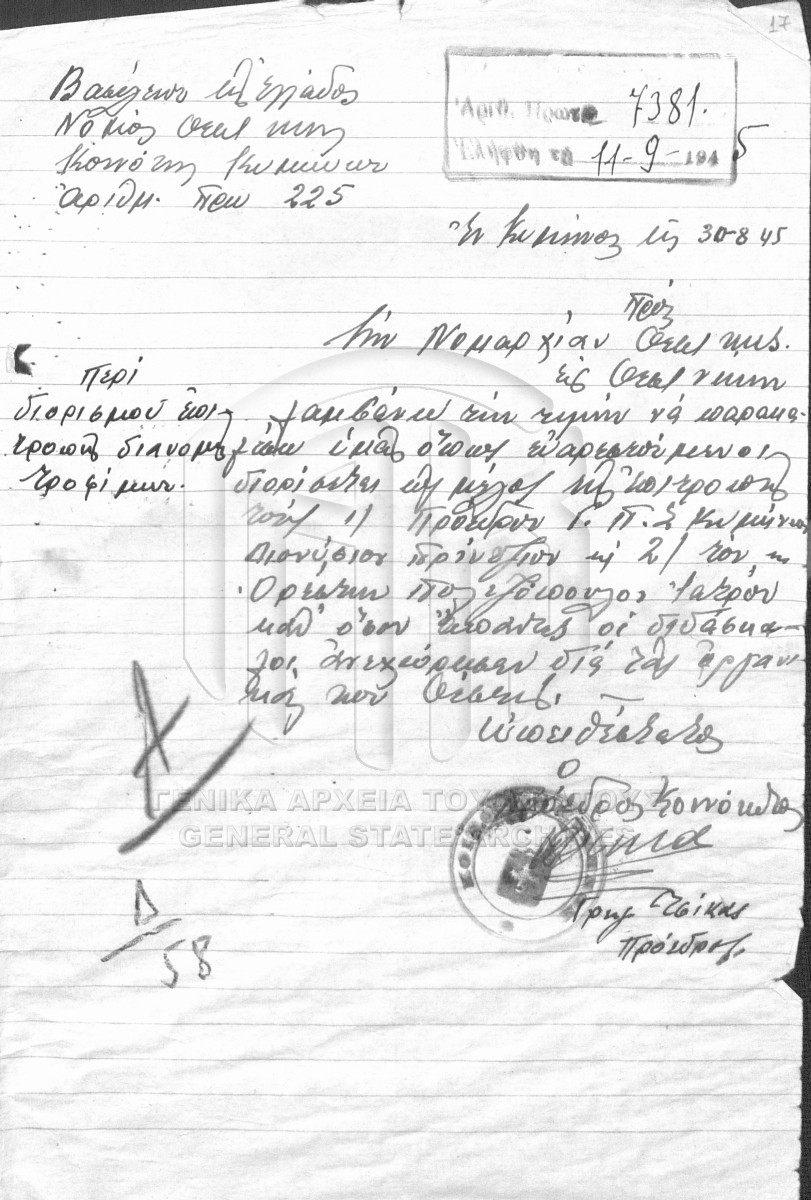 17
Βασίλειον τῆς Ἑλλάδος
Νομὸς Θεσ/νικης
Κοινότης Κυμίνων
Ἀριθμ. Πρω 225
Ἀριθ. Πρωτ. 7381.
Ἐλήφθη τῇ 11-9-1945
Ἐν Κυμίνοις τῇ 30-8-45
Πρὸς
Τὴν Νομαρχίαν Θεσ/νικης.
εἰς Θεσ/νίκην
Περὶ
διορισμοῦ ἐπι-
τροπῆς διανομῆς
τροφίμων.
Λαμβάνω τὴν τιμὴν νὰ παρακα-
ὑμᾶς ὅπως εὐαρεστούμενοι
διορίσετε ὡς μέλος τῆς Ἐπιτροπῆς
τοὺς 1) Πρόεδρον Γ.Π.Σ Κυμίνων
Διονύσιον 2/ τὸν κ.
Ὀρέστην Ἰατρὸν
καθ' ὅσον ἅπαντες οἱ διδάσκα-
λοι ἀνεχώρησαν διὰ τὰς ὀργανι-
κάς των θέσεις.
Εὐπειθέστατος
Ο
Πρόεδρος Κοινότητος
Γρηγ. Τσίκας
Πρόεδρος.
Δ
58
ΓΕΝΙΚΑ ΑΡΧΕΙΑ ΤΟΥ ΚΡΑΤΟΥΣ
GENERAL STATE ARCHIVES